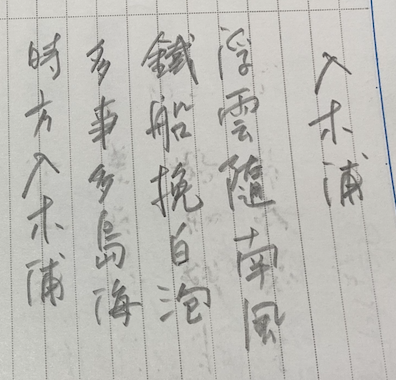 入木浦
浮雲隨南風
鐵船挽白泡
多事多島海
時方入木浦